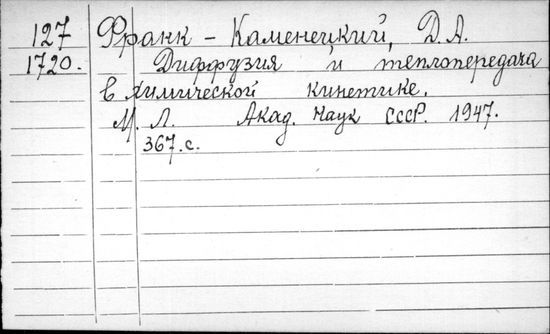 127 Франк - Каменецкий, Д.А.
1720. Диффузия и теплопередача
в химической кинетике.
М. Л. Акад. Наук СССР. 1947.
367.с.